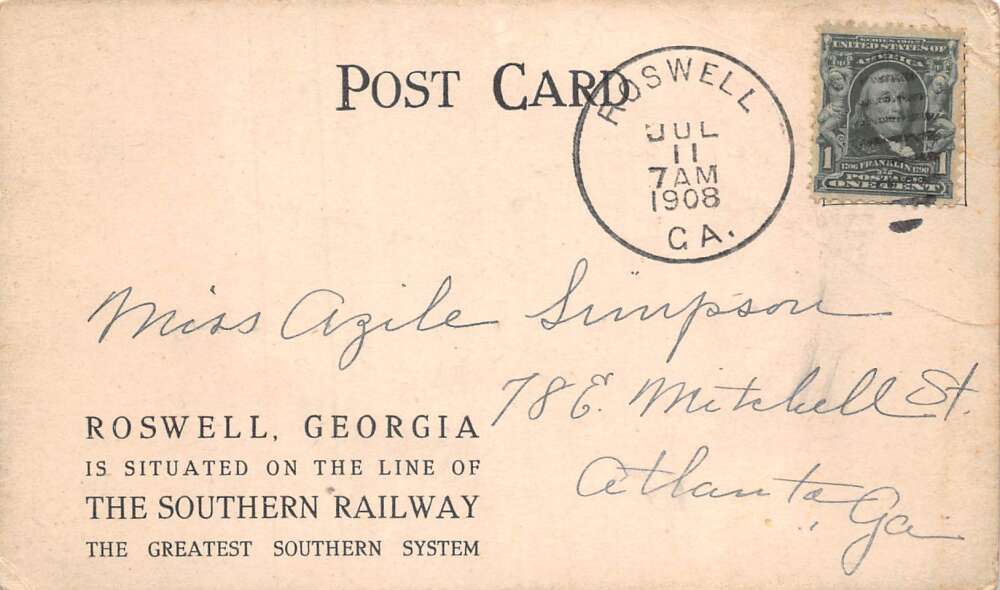 POST CARD
ROSWELL
JUL
11
7 AM
1908
GA.
SERIES 1902
UNITED STATES OF
AMERICA
1706 FRANKLIN 1790
1 POSTAGE 1
ONE CENT
Miss Azile Simpson
78 E. Mitchell St.
Atlanta,
Ga
ROSWELL, GEORGIA
IS SITUATED ON THE LINE OF
THE SOUTHERN RAILWAY
THE GREATEST SOUTHERN SYSTEM